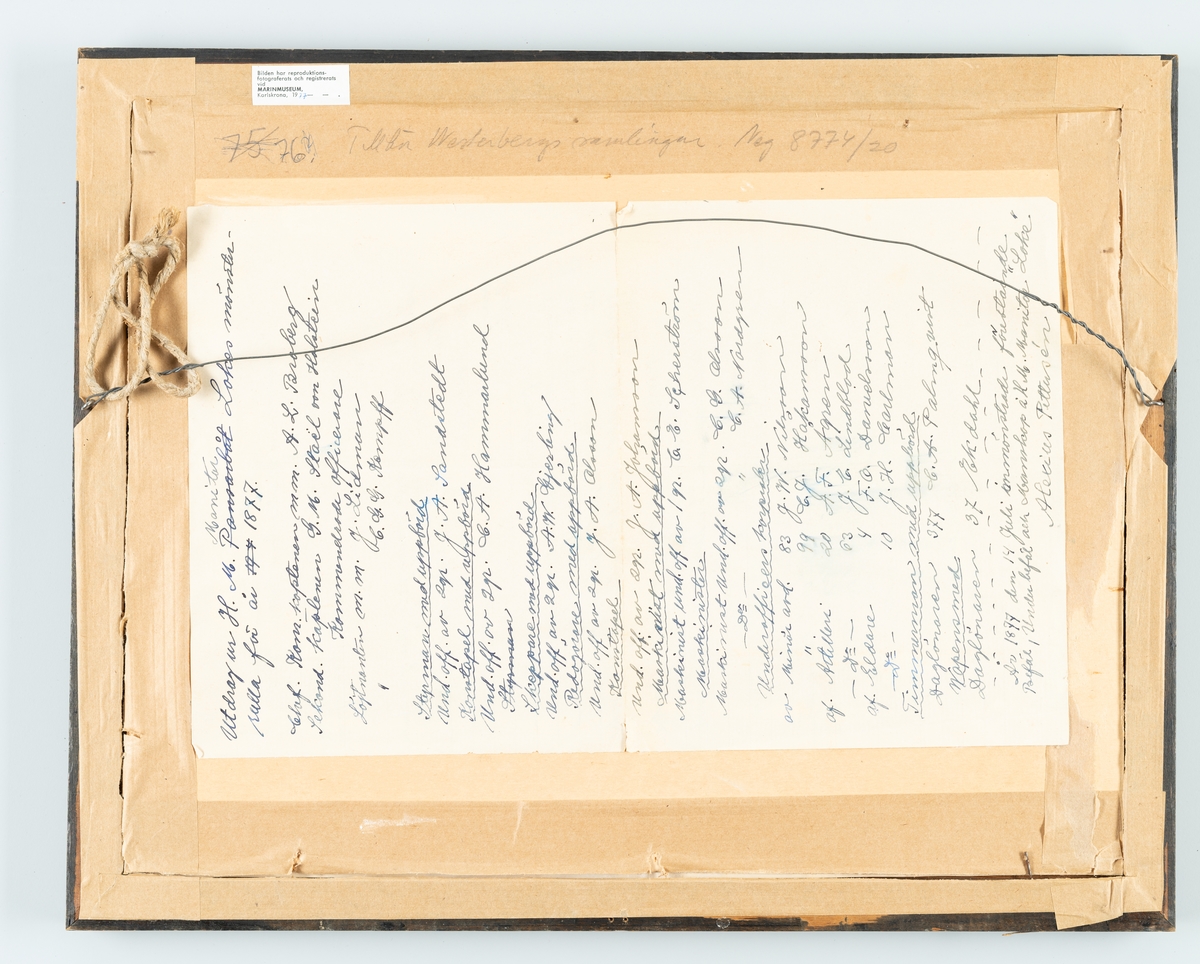 Bilden har reproduktions-
fotograferats och registrerats
vid
MARINMUSEUM,
Karlskrona, 19
75 76 Tillhör Westerbergs samlingar. Neg 8774/20
Utdrag ur H. M. Monitör Pansarbåt Lokes mönster-
rulla för år 1877.
Chef. Kom. kaptenen m.m. A. L. Barberg
Sekond. Kaptenen G. M. Staël von Holstein
Kommenderade Officerare
Löjtnanten m. m. J. Lidman
Lör C. G. G. Kempff
Styrman med uppbörd
Und. off. av 2 gr. J. A. Sandstedt
Konstapel med uppbörd
Und. off. av 2 gr. C. A. Hammarlund
Styrman
Skeppare med uppbörd
Und. off. av 2 gr. A. W. Gjerling
Redogörare med uppbörd
Und. off. av 2 gr. J. A. Olsson
Konstapel
Und. off. av 2 gr. J. A. Johansson
Maskinist med uppbörd
Maskinist und. off. av 1 gr. C. E. Söderström
Maskinister
Maskinist und. off. av 2 gr. C. G. Olsson
— D:o — " C. A. Nordgren
Underofficerskorpraler
av Minör art. 83 J. W. Nilsson
99 C. J. Håkansson
af Artilleri 20 A. F. Ågren
— D:o — 63 J. E. Lindblod
af Eldare 4 F. O. Danielsson
— D:o — 10 J. H. Carlman
Timmerman med uppbörd
Daglönaren 377 C. A. Palmquist
Vapensmed
Daglönaren 37 Ekdahl
År 1877 den 14 Juli inmönstrade förestående
Befäl, Underbefäl och Manskap å H. M. Monitör "Loke"
Alexius Pettersén